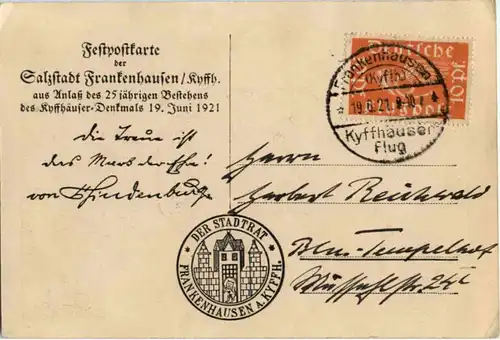 Festpostkarte
der
Salzstadt Frankenhausen/Kyffh.
aus Anlaß des 25jährigen Bestehens
des Kyffhäuser-Denkmals 19. Juni 1921
Die Treue ist
das Mark der Ehre!
von Hindenburg
* DER STADTRAT *
FRANKENHAUSEN A. KYFFH.
Deutsche
Flugpost
10 Pf.
Frankenhausen
(Kyffh)
* 19.6.21. 9-10 V *
Kyffhäuser
Flug
Herrn
Herbert Reichwald
Bln.-Tempelhof